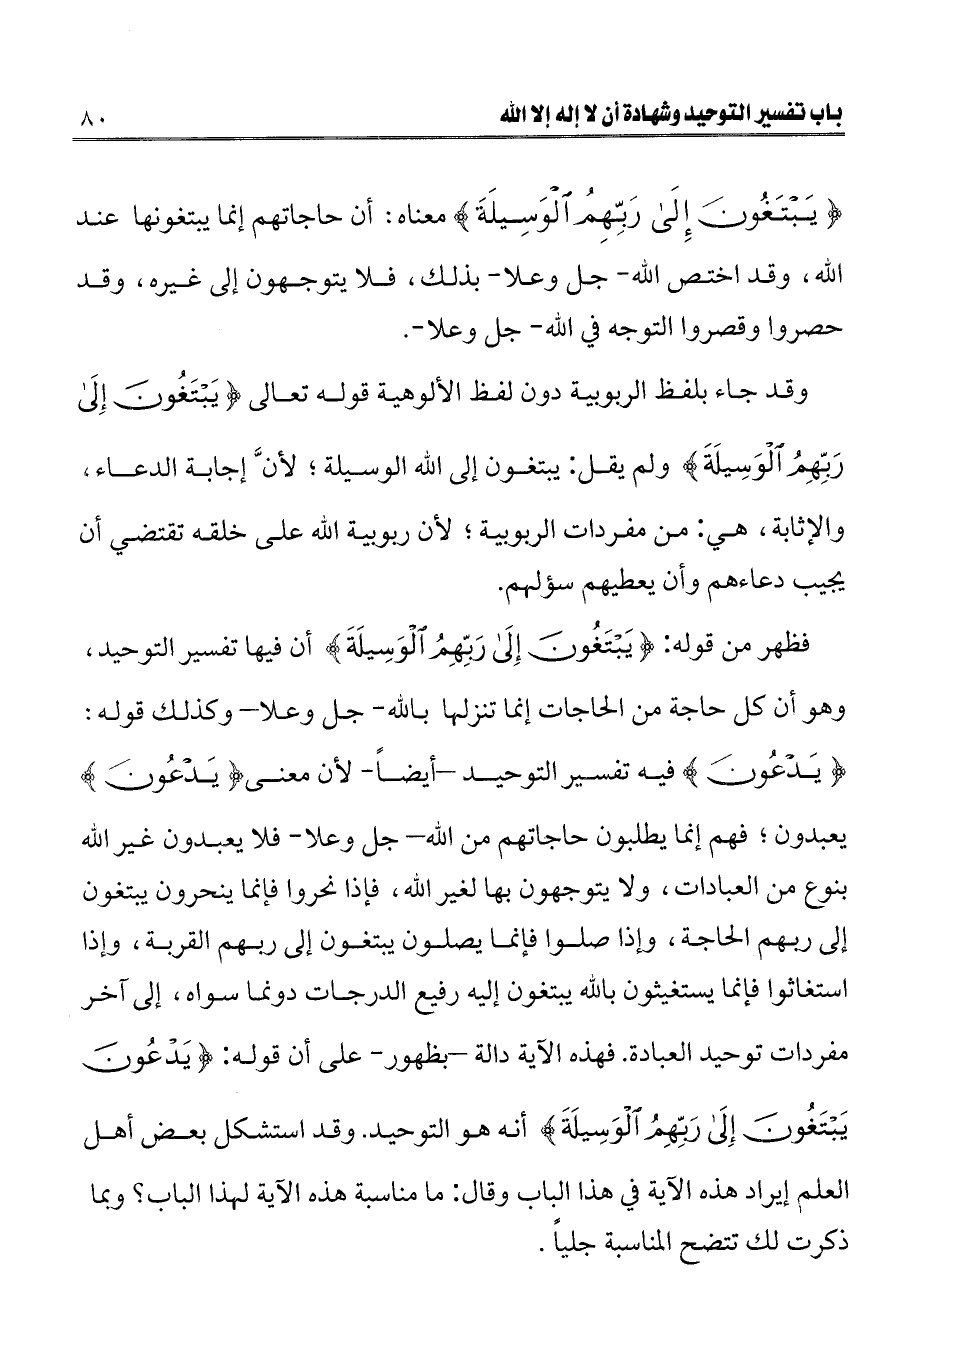 باب تفسير التوحيد وشهادة أن لا إله إلا الله ٨٠
﴿ يَبْتَغُونَ إِلَىٰ رَبِّهِمُ ٱلْوَسِيلَةَ ﴾ معناه : أن حاجاتهم إنما يبتغونها عند
الله ، وقد اختص الله- جل وعلا- بذلك ، فلا يتوجهون إلى غيره ، وقد
حصروا وقصروا التوجه في الله- جل وعلا-.
وقد جاء بلفظ الربوبية دون لفظ الألوهية قوله تعالى ﴿ يَبْتَغُونَ إِلَىٰ
رَبِّهِمُ ٱلْوَسِيلَةَ ﴾ ولم يقل: يبتغون إلى الله الوسيلة ؛ لأنَّ إجابة الدعاء ،
والإثابة ، هي: من مفردات الربوبية ؛ لأن ربوبية الله على خلقه تقتضي أن
يجيب دعاءهم وأن يعطيهم سؤلهم.
فظهر من قوله: ﴿ يَبْتَغُونَ إِلَىٰ رَبِّهِمُ ٱلْوَسِيلَةَ ﴾ أن فيها تفسير التوحيد ،
وهو أن كل حاجة من الحاجات إنما تنزلها بالله- جل وعلا– وكذلك قوله :
﴿ يَدْعُونَ ﴾ فيه تفسير التوحيد –أيضاً- لأن معنى ﴿ يَدْعُونَ ﴾
يعبدون ؛ فهم إنما يطلبون حاجاتهم من الله– جل وعلا- فلا يعبدون غير الله
بنوع من العبادات ، ولا يتوجهون بها لغير الله ، فإذا نحروا فإنما ينحرون يبتغون
إلى ربهم الحاجة ، وإذا صلوا فإنما يصلون يبتغون إلى ربهم القربة ، وإذا
استغاثوا فإنما يستغيثون بالله يبتغون إليه رفيع الدرجات دونما سواه ، إلى آخر
مفردات توحيد العبادة. فهذه الآية دالة –بظهور- على أن قوله: ﴿ يَدْعُونَ
يَبْتَغُونَ إِلَىٰ رَبِّهِمُ ٱلْوَسِيلَةَ ﴾ أنه هو التوحيد. وقد استشكل بعض أهل
العلم إيراد هذه الآية في هذا الباب وقال: ما مناسبة هذه الآية لهذا الباب؟ وبما
ذكرت لك تتضح المناسبة جلياً .